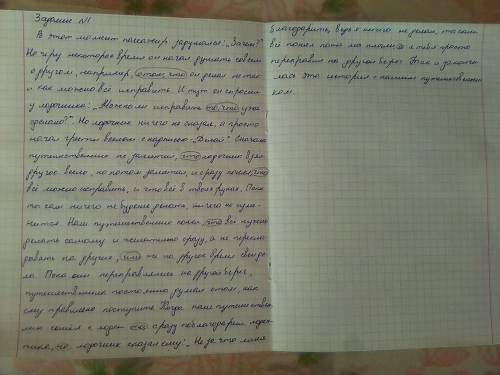 Задание №1
В этот момент пассажир задумался: „Зачем?"
Но через некоторое время он начал думать совсем
о другом, например, о том, что он делал не так
и как можно все исправить. И тут он спросил
у лодочника: „Можно ли исправить то, что уже
сделано?". Но лодочник ничего не сказал, а просто
начал грести веслом с надписью „Делай". Сначала
путешественник не заметил, что лодочник взял
другое весло, но потом заметил, и сразу понял, что
всё можно исправить, и что всё в твоих руках. Пока
ты сам ничего не будешь делать, ничего не
Наш путешественник понял, что всё нужно
делать самому и желательно сразу, а не
на других, или же на другое время своё
дело. Пока они переправлялись на другой берег,
путешественник постоянно думал о том, как
ему правильно поступить. Когда наш путешествен-
ник сошёл с лодки, он сразу поблагодарил лодоч-
ника, но лодочник сказал ему: „Не за что меня
благодарить, ведь я ничего не делал, ты сам
всё понял пока мы плыли, а я тебя просто
переправил на другой берег. Так и закончи-
лась эта история с нашим путешественни-
ком.